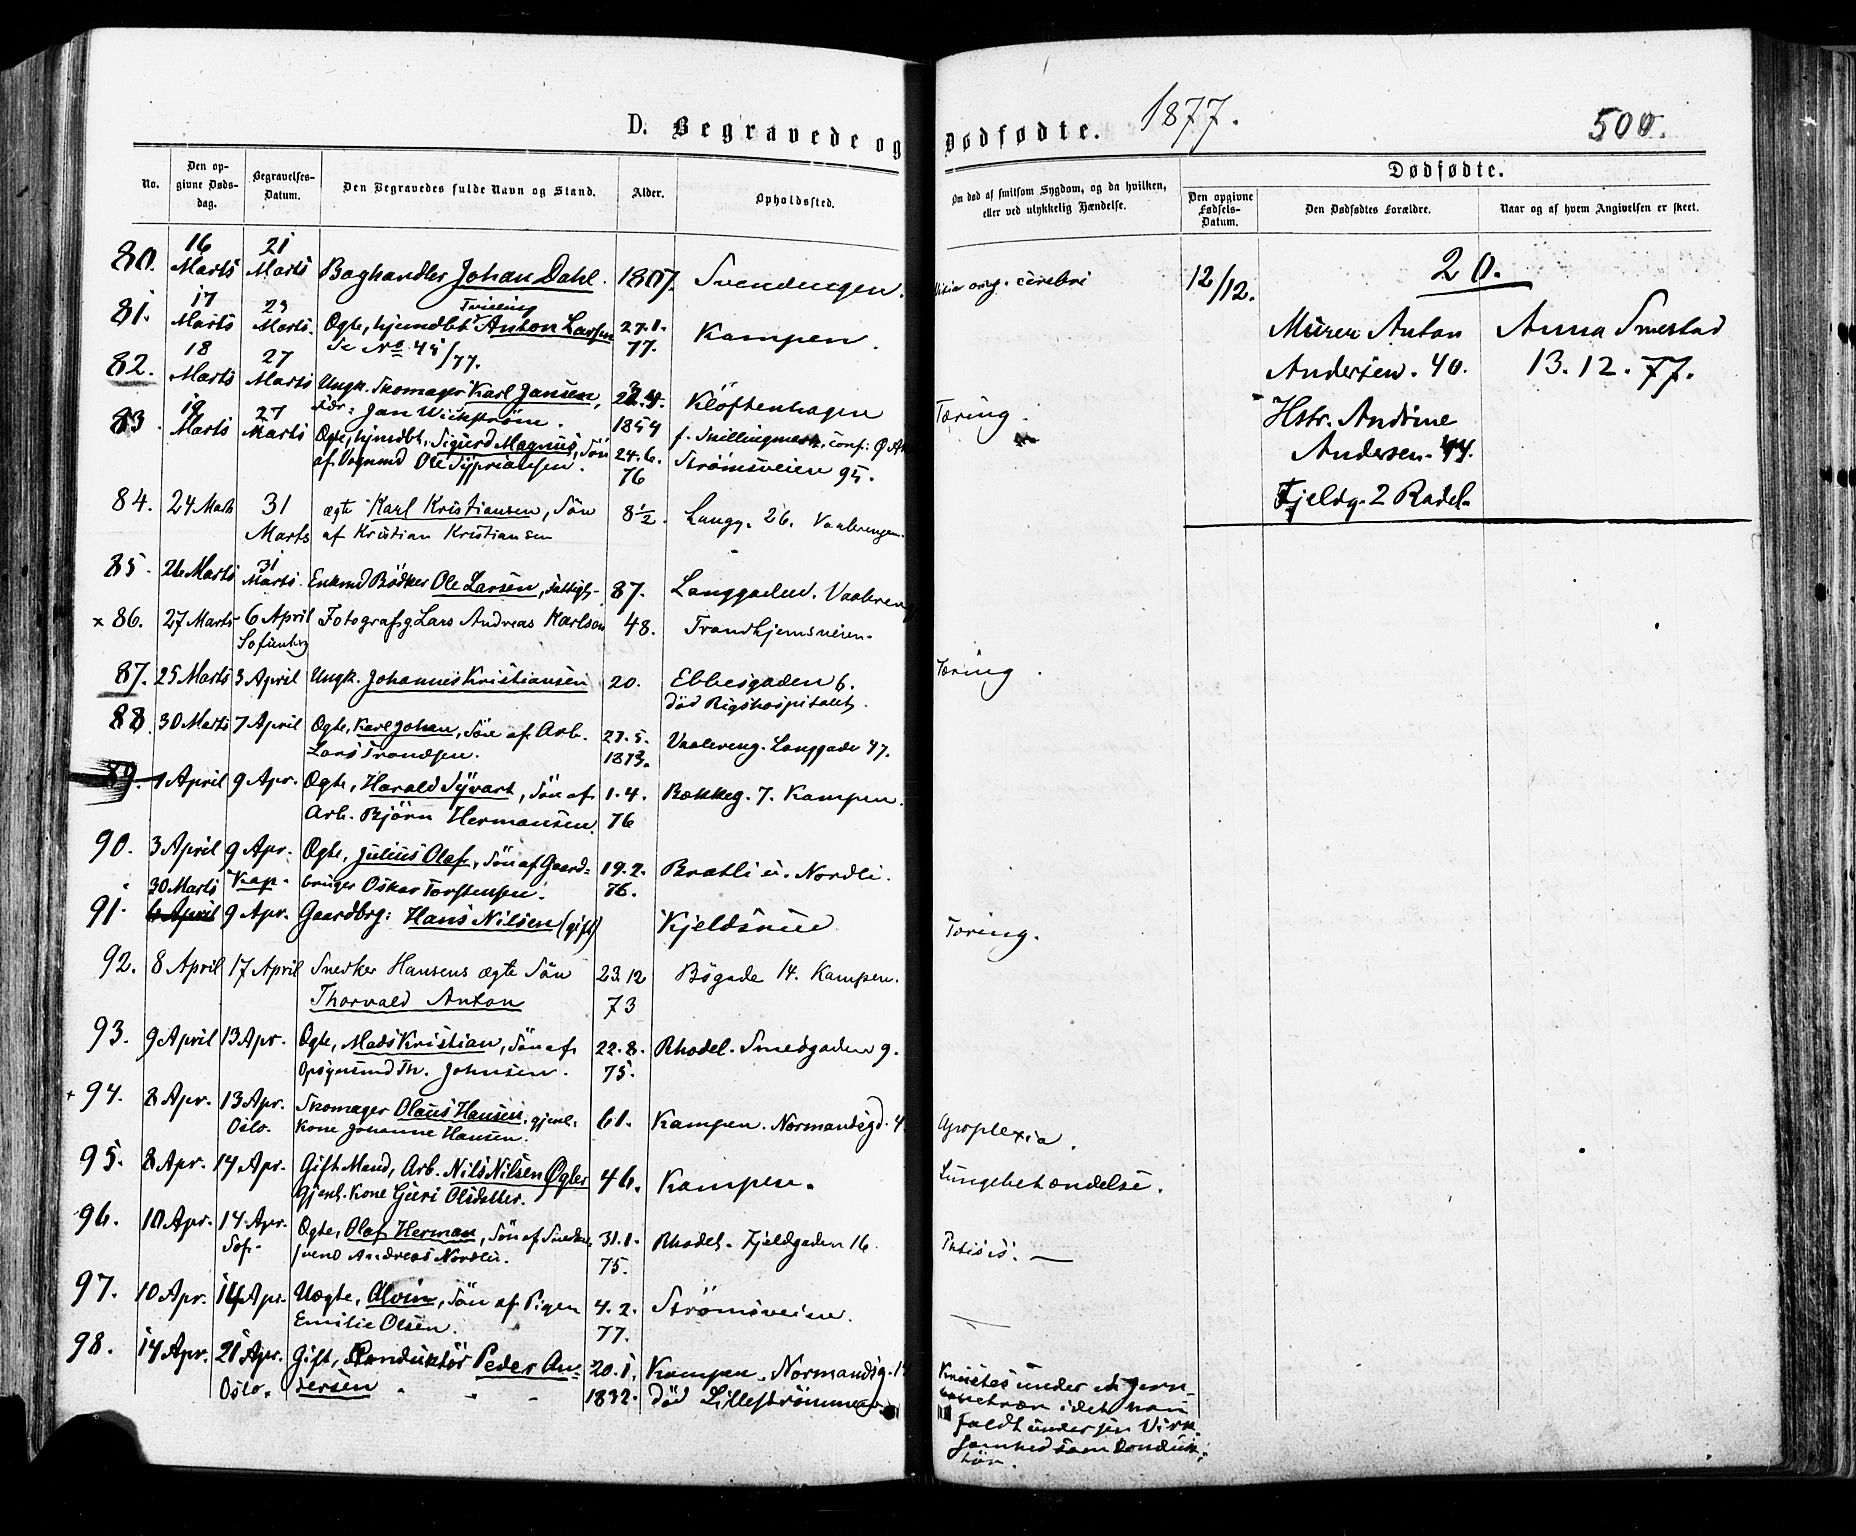 D. Begravede og Dødfødte. 1877. 500.
No.
Den opgivne Dødsdag.
Begravelses-Datum.
Den Begravedes fulde Navn og Stand.
Alder.
Opholdssted.
Om død af smitsom Sygdom, og da hvilken, eller ved ulykkelig Hændelse.
Dødfødte.
Den opgivne Fødsels-Datum.
Den Dødfødtes Forældre.
Naar og af hvem Angivelsen er skeet.
80. 16 Marts 21 Marts Boghandler Johan Dahl. 1807. Svendengen. cerebri
81. 17 Marts 23 Marts. Ægte, hjemdbt Tvilling Anton Larsen 27.1. Kampen.
Se No 45/77. 77.
82. 18 Marts 27 Marts Ungk. Skomager Karl Jansen, Kløftenhagen Tæring.
Fdr: Jan Wickstrøm. 1854
83. 19 Marts 27 Marts Ægte, hjmdbt, Sigurd Magnus, Søn 24.6. Strømsveien 95.
af Vognmd Ole Syprianssen. 76
84. 24 Marts 31 Marts ægte Karl Kristiansen, Søn 8 1/2. Langg. 26. Vaalerengen.
af Kristian Kristiansen
85. 26 Marts 31 Marts. Enkemd Bødker Ole Larsen, Fattigl. 87. Langgaden. Vaalereng
x 86. 27 Marts 6 April Fotograf g Lars Andreas Karlson 48. Trondhjemsveien.
Sofienberg
87. 25 Marts 3 April Ungk. Johannes Kristiansen 20. Ebbesgaden 6. Tæring.
død Rigshospitalet.
88. 30 Marts 7 April Ægte, Karl Johan, Søn af Arb. 27.5. Vaalereng. Langgade 47.
Lars Trondsen. 1873.
89. 1 April 9 Apr. Ægte, Harald Syvart, Søn af 1.4. Bækkeg. 7. Kampen.
Arb. Bjørn Hermansen. 76
90. 3 April 9 Apr. Ægte, Julius Olaf, Søn af Gaard= 19.2. Bratli u. Nordli.
Kap. bruger Oskar Torstensen. 76.
91. 30 Marts 6 April 9 Apr. Gaardbrg: Hans Nilsen (gift) Kjeldsrud Tæring.
92. 8 April 17 April Snedker Hansens ægte Søn 23.12 Bøgade 14. Kampen.
Thorvald Anton 73
93. 9 April 13 Apr. Ægte, Mads Kristian, Søn af 22.8. Rhodel. Smedgaden 9.
Opsynsmd Th. Johnsen. 75.
+ 94. 8 Apr. 13 Apr. Skomager Olaus Hansen. gjenl. 61. Kampen. Normandsgd. 4. Apoplexia.
Oslo. Kone Johanne Hansen.
95. 8 Apr. 14 Apr. Gift Mand, Arb. Nils Nilsen Øgler 46. Kampen. Lungebetændelse.
gjenl. Kone Guri Olsdatter.
96. 10 Apr. 14 Apr. Ægte, Olaf Herman, Søn af Snedker 31.1. Rhodel. Fjeldgaden 16. Ptisis.
Sof. svend Andreas Nordlie. 75.
97. 10 Apr. 14 Apr. Uægte, Alvin, Søn af Pigen 4.2. Strømsveien.
Emilie Olsen. 77.
98. 14 Apr. 21 Apr. Gift, Konduktør Peder An= 20.1. Kampen. Normandsg. 14
Oslo. dersen. 1832. død Lillestrømmen
Knustes under et Jern
banetræn idet han
faldt under sin Virk=
somhed som Konduk=
tør.
12/12. 20.
Murer Anton
Andersen. 40.
Hstr. Andrine
Andersen. 44.
Fjeldg. 2 Rodel.
Anna Smestad
13.12.77.